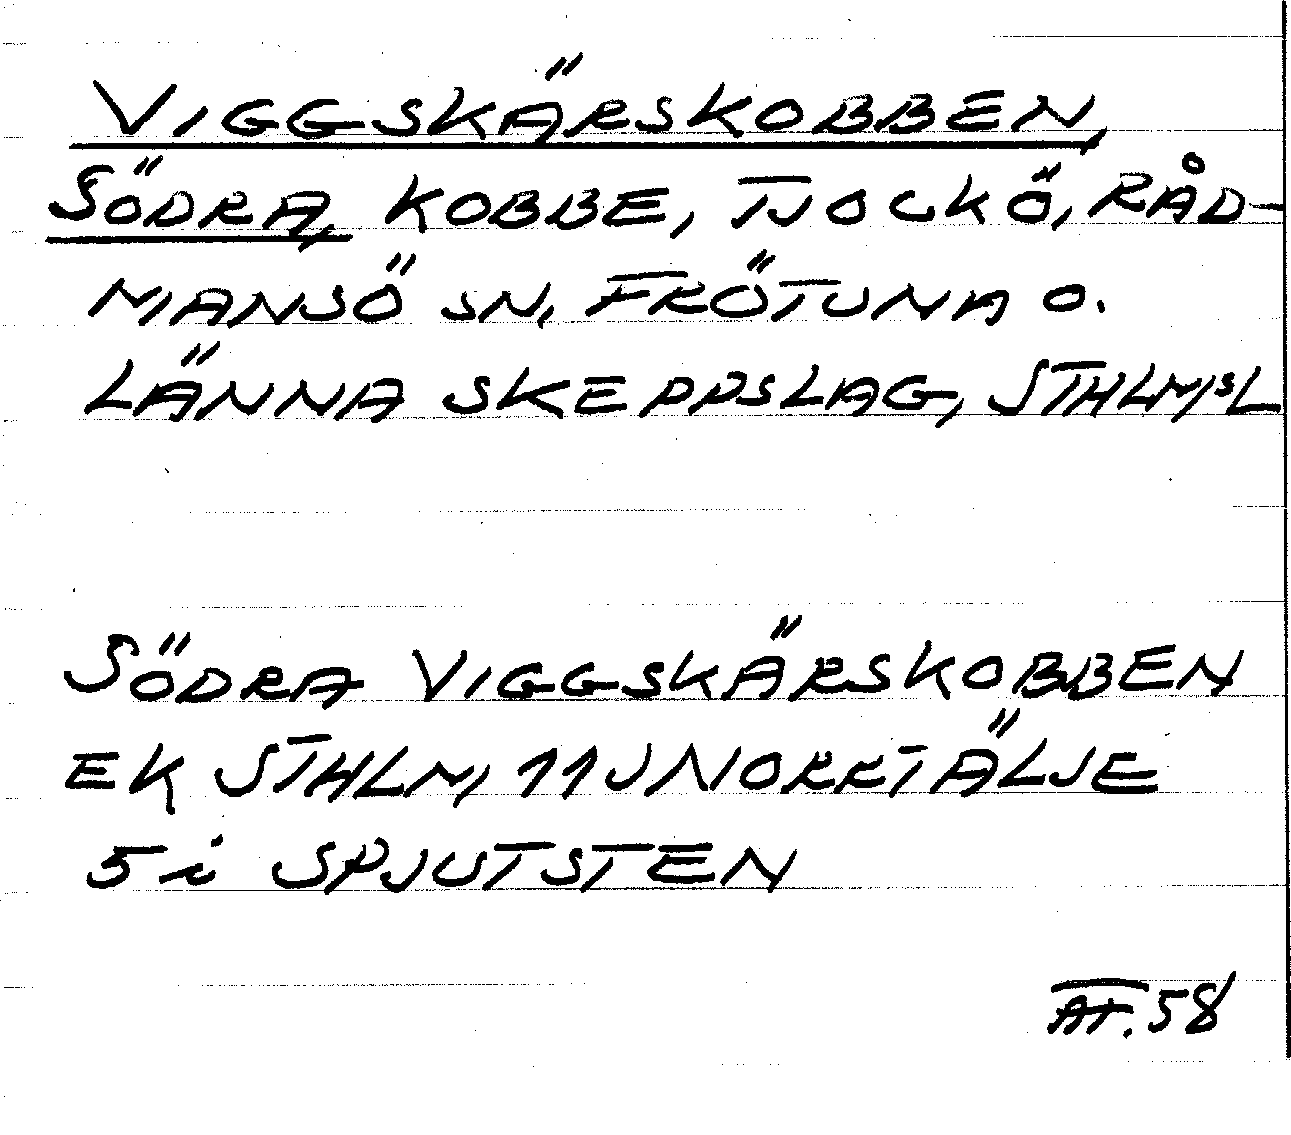 VIGGSKÄRSKOBBEN,
SÖDRA, KOBBE, TJOCKÖ, RÅD-
MANSÖ SN, FRÖTUNA O.
LÄNNA SKEPPSLAG, STHLMSL
SÖDRA VIGGSKÄRSKOBBEN
EK STHLM, 11J NORRTÄLJE
5 i SPJUTSTEN
AT. 58